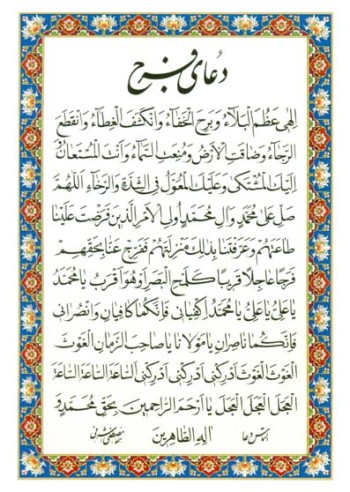 دعای فرج
اِلٰهی عَظُمَ الْبَلاٰءُ وَ بَرِحَ الْخَفٰآءُ وَانْکَشَفَ الْغِطٰآءُ وَانْقَطَعَ
الرَّجٰآءُ وَ ضٰاقَتِ الْاَرْضُ وَ مُنِعَتِ السَّمٰآءُ وَ اَنْتَ الْمُسْتَعٰانُ وَ
اِلَیْكَ الْمُشْتَکیٰ وَ عَلَیْكَ الْمُعَوَّلُ فِی الشِّدَّةِ وَالرَّخٰآءِ اَللّٰهُمَّ
صَلِّ عَلیٰ مُحَمَّدٍ وَ اٰلِ مُحَمَّدٍ اُولِی الْاَمْرِ الَّذینَ فَرَضْتَ عَلَیْنٰا
طٰاعَتَهُمْ وَ عَرَّفْتَنٰا بِذٰلِكَ مَنْزِلَتَهُمْ فَفَرِّجْ عَنّٰا بِحَقِّهِمْ
فَرَجًا عٰاجِلًا قَریبًا کَلَمْحِ الْبَصَرِ اَوْ هُوَ اَقْرَبُ یٰا مُحَمَّدُ
یٰا عَلِیُّ یٰا عَلِیُّ یٰا مُحَمَّدُ اِکْفِیٰانی فَاِنَّکُمٰا کٰافِیٰانِ وَانْصُرٰانی
فَاِنَّکُمٰا نٰاصِرٰانِ یٰا مَوْلٰانٰا یٰا صٰاحِبَ الزَّمٰانِ الْغَوْثَ
الْغَوْثَ الْغَوْثَ اَدْرِکْنی اَدْرِکْنی اَدْرِکْنی اَلسّٰاعَةَ السّٰاعَةَ السّٰاعَةَ
الْعَجَلَ الْعَجَلَ الْعَجَلَ یٰا اَرْحَمَ الرّٰاحِمینَ بِحَقِّ مُحَمَّدٍ وَ
اٰلِهِ الطّٰاهِرینَ
التماس دعا